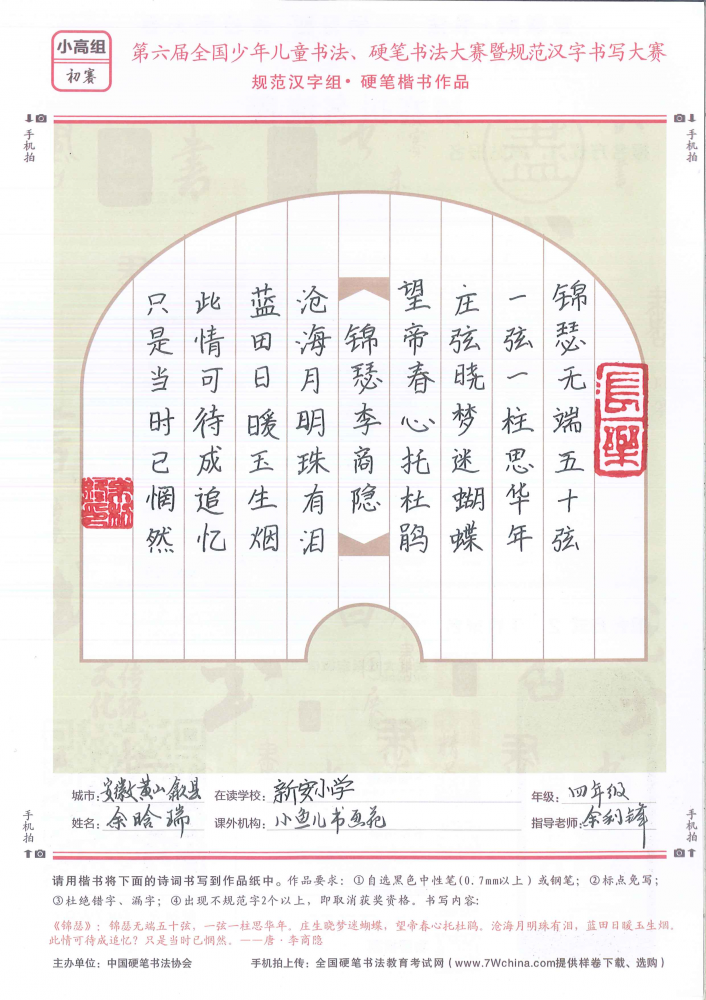 小高组
初赛
第六届全国少年儿童书法、硬笔书法大赛暨规范汉字书写大赛
规范汉字组·硬笔楷书作品
手机拍
手机拍
锦瑟无端五十弦
一弦一柱思华年
庄弦晓梦迷蝴蝶
望帝春心托杜鹃
锦瑟李商隐
沧海月明珠有泪
蓝田日暖玉生烟
此情可待成追忆
只是当时已惘然
长乐
城市：安徽黄山歙县 在读学校：新安小学 年级：四年级
姓名：余晗瑞 课外机构：小鱼儿书画苑 指导老师：余利锋
手机拍
手机拍
请用楷书将下面的诗词书写到作品纸中。作品要求：①自选黑色中性笔(0.7mm以上）或钢笔；②标点免写；
③杜绝错字、漏字；④出现不规范字2个以上，即取消获奖资格。书写内容：
《锦瑟》：锦瑟无端五十弦，一弦一柱思华年。庄生晓梦迷蝴蝶，望帝春心托杜鹃。沧海月明珠有泪，蓝田日暖玉生烟。
此情可待成追忆？只是当时已惘然。——唐·李商隐
主办单位：中国硬笔书法协会 手机拍上传：全国硬笔书法教育考试网（www.7Wchina.com提供样卷下载、选购）